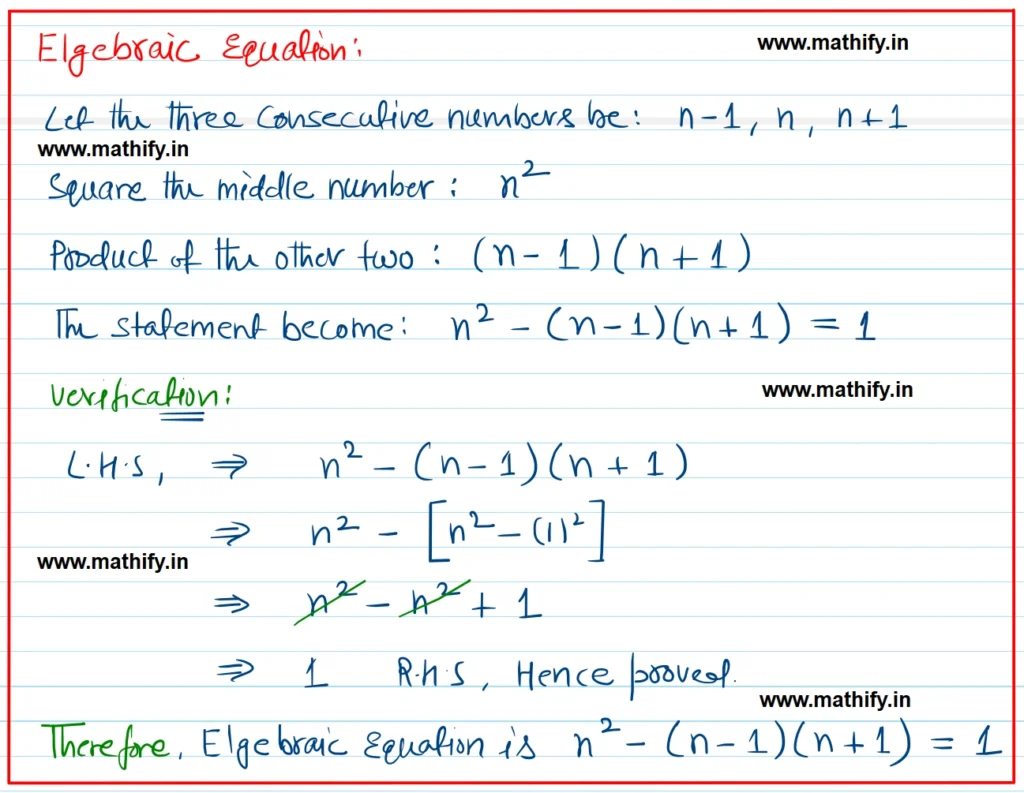 Elgebraic Equation:
www.mathify.in
Let the three consecutive numbers be: n-1, n, n+1
www.mathify.in
Square the middle number: n²
Product of the other two: (n-1)(n+1)
The statement become: n² - (n-1)(n+1) = 1
verification:
www.mathify.in
L.H.S, ⇒ n² - (n-1)(n+1)
⇒ n² - [n² - (1)²]
www.mathify.in
⇒ n² - n² + 1
⇒ 1 R.H.S, Hence proved.
www.mathify.in
Therefore, Elgebraic Equation is n² - (n-1)(n+1) = 1